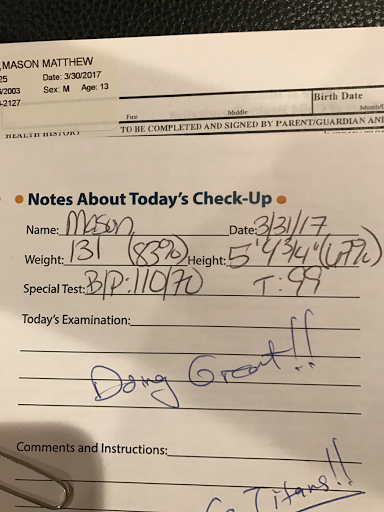 , MASON MATTHEW
25 Date: 3/30/2017
/2003 Sex: M Age: 13
-2127
Birth Date
First Middle Month/
HEALTH HISTORY TO BE COMPLETED AND SIGNED BY PARENT/GUARDIAN AN
Notes About Today's Check-Up
Name: Mason Date: 3/31/17
Weight: 131 (83%) Height: 5'4 3/4" (67%)
Special Test: B/P: 110/70 T: 99
Today's Examination:
Doing Great!!
Comments and Instructions:
Go Titans!!